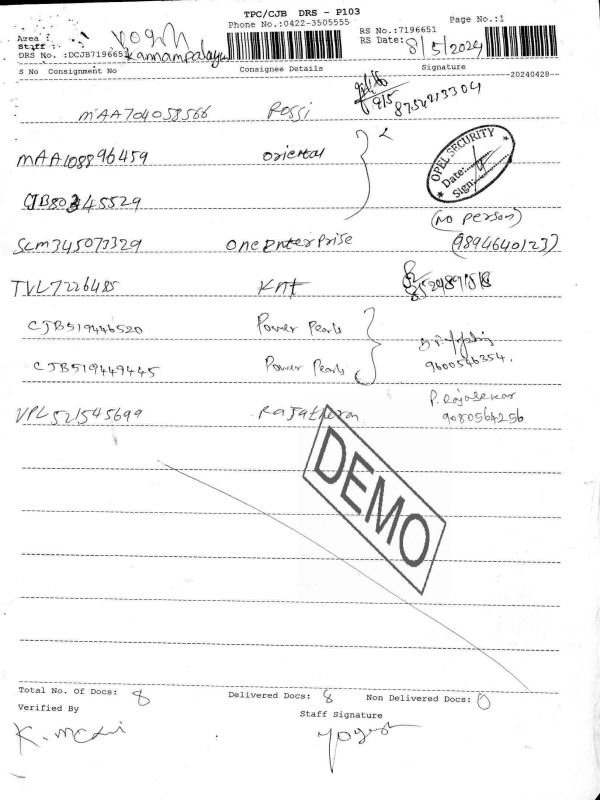 TPC/CJB DRS - P103
Phone No.:0422-3505555
Page No.:1
Area :
Staff : Yogesh
RS No.:7196651
RS Date: 8/5/2024
DRS No. :DCJB7196651 Kannampalayam
S No Consignment No Consignee Details Signature
20240428--
MAA704058566 Rossi 9/5 8754213304
MAA108896459 Oriental
OPEL SECURITY
Date:
Sign:
CJB80345529
(No person)
SCM345073329 One Enterprise (9894640123)
TVL7226485 KNT
CJB519446520 Power Pearls
CJB519449445 Power Pearls 9600546354.
P. Rajasekar
VPL521545699 Rajatheran 9080564256
DEMO
Total No. Of Docs: 8 Delivered Docs: 8 Non Delivered Docs: 0
Verified By Staff Signature
Yogesh